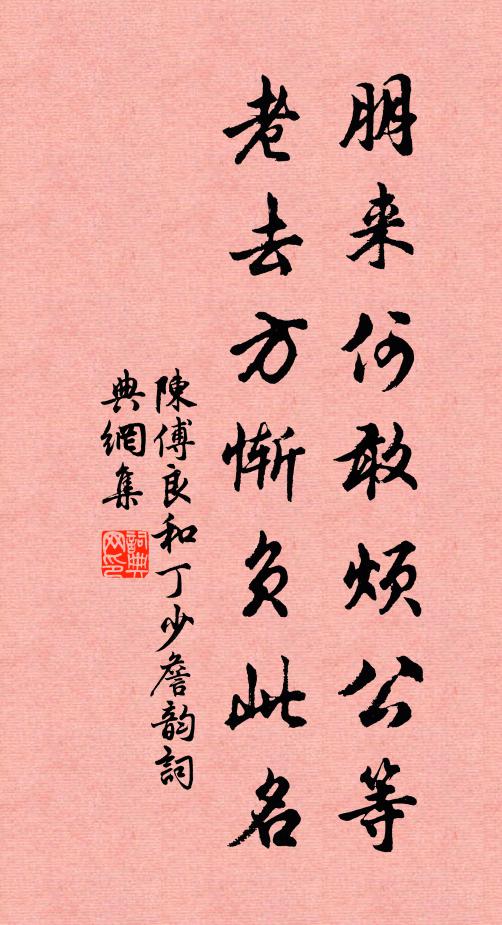 朋来何敢烦公等
老去方惭负此名
陳傅良和丁少詹韵詞
典網集
詞典
网印